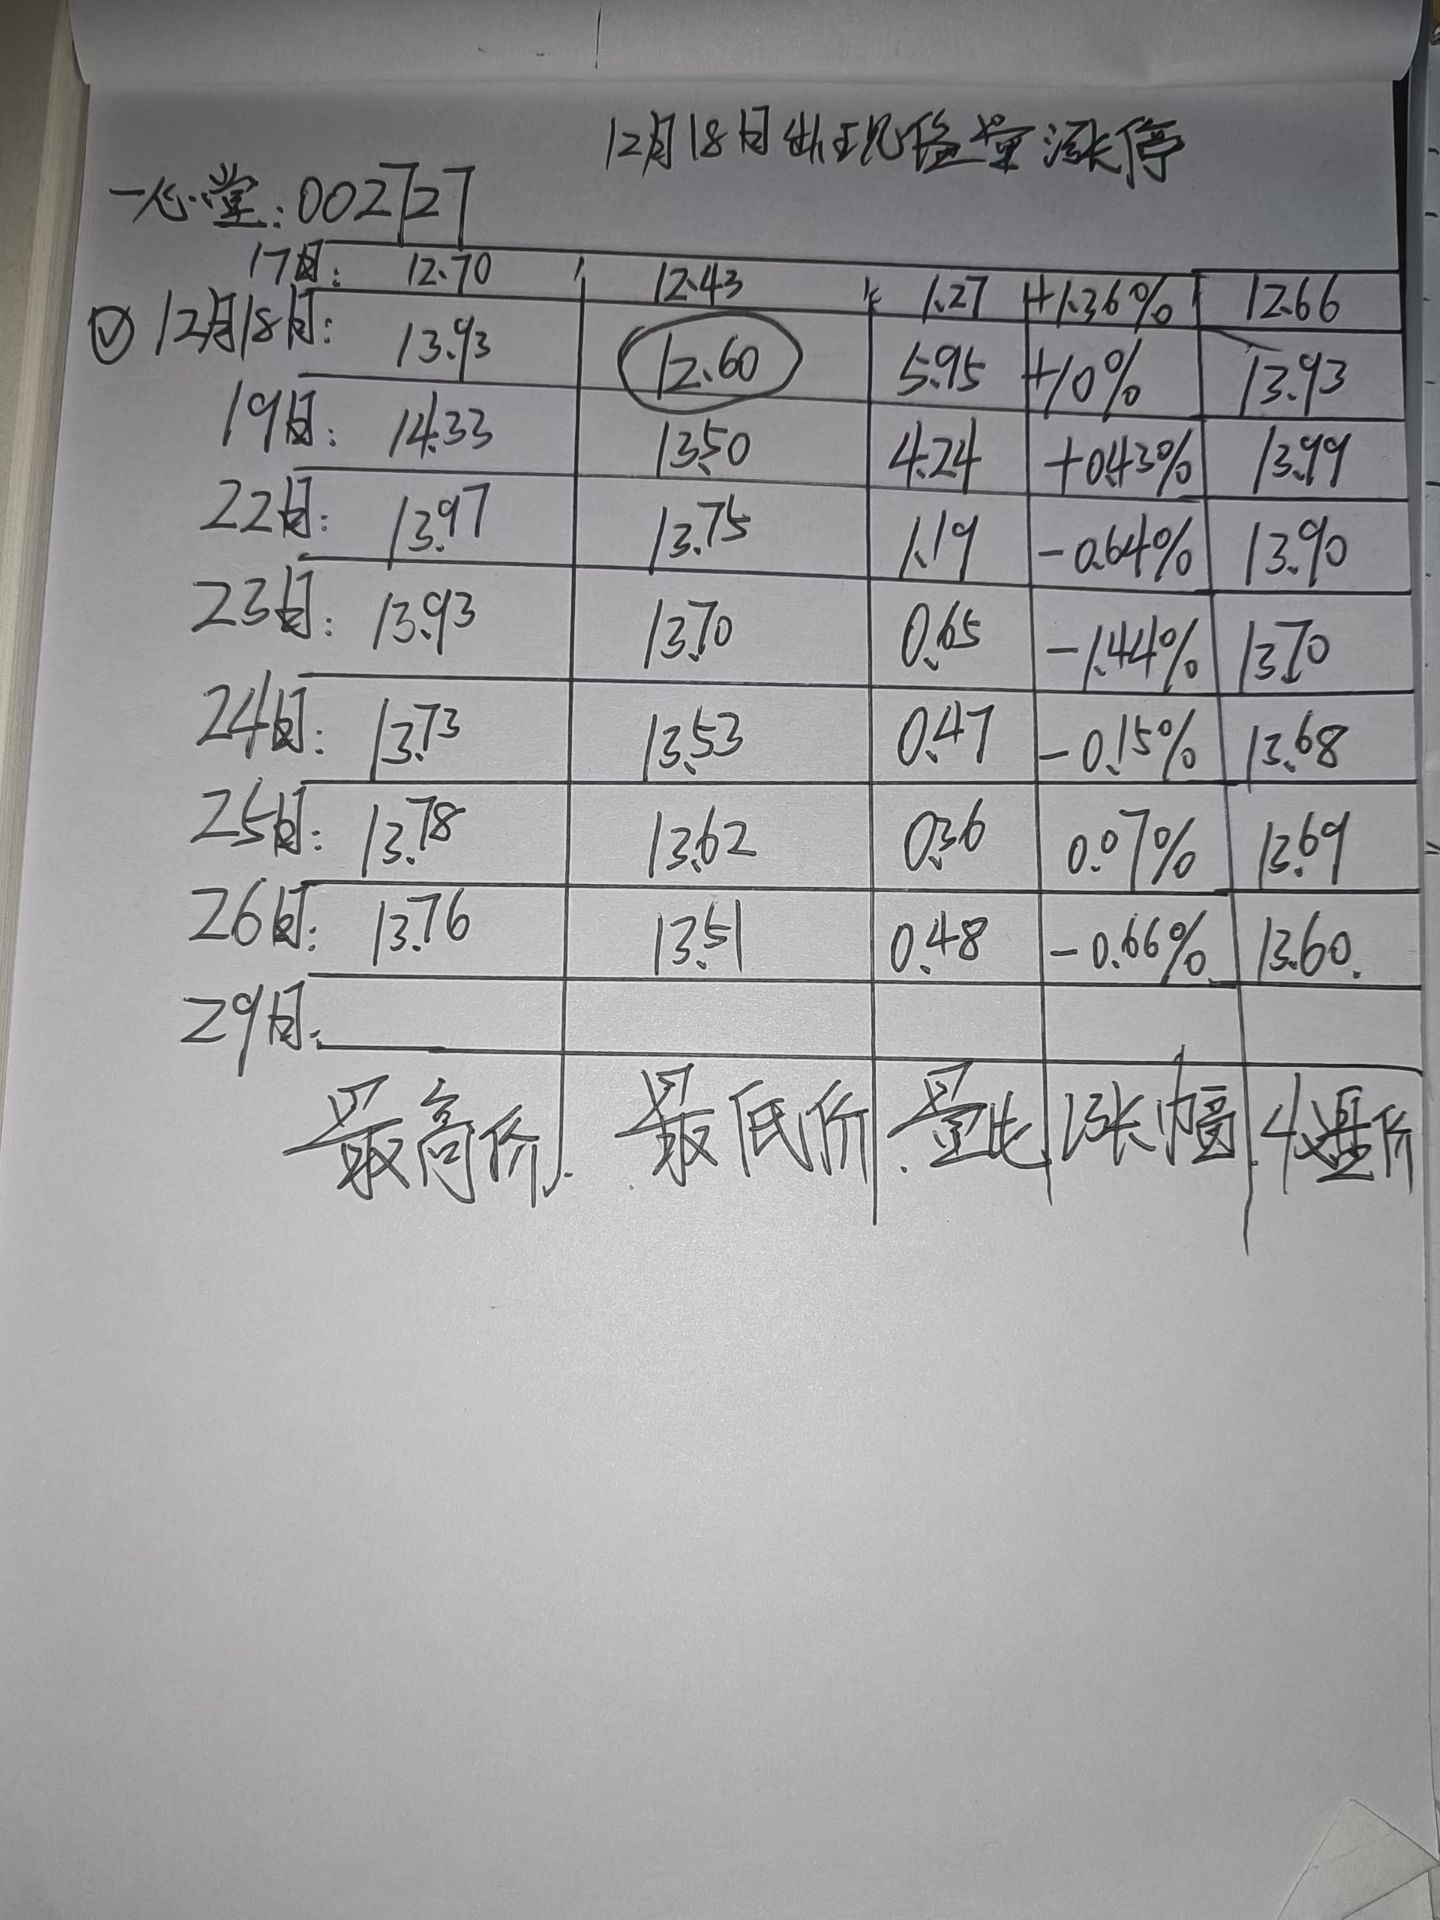 12月18日出现倍量涨停
一心堂:002727
17日: 12.70 12.43 1.27 +1.36% 12.66
12月18日: 13.93 12.60 5.95 +10% 13.93
19日: 14.33 13.50 4.24 +0.43% 13.99
22日: 13.97 13.75 1.19 -0.64% 13.90
23日: 13.93 13.70 0.65 -1.44% 13.70
24日: 13.73 13.53 0.47 -0.15% 13.68
25日: 13.78 13.62 0.36 0.07% 13.69
26日: 13.76 13.51 0.48 -0.66% 13.60.
29日:
最高价. 最低价. 量比 涨幅. 收盘价